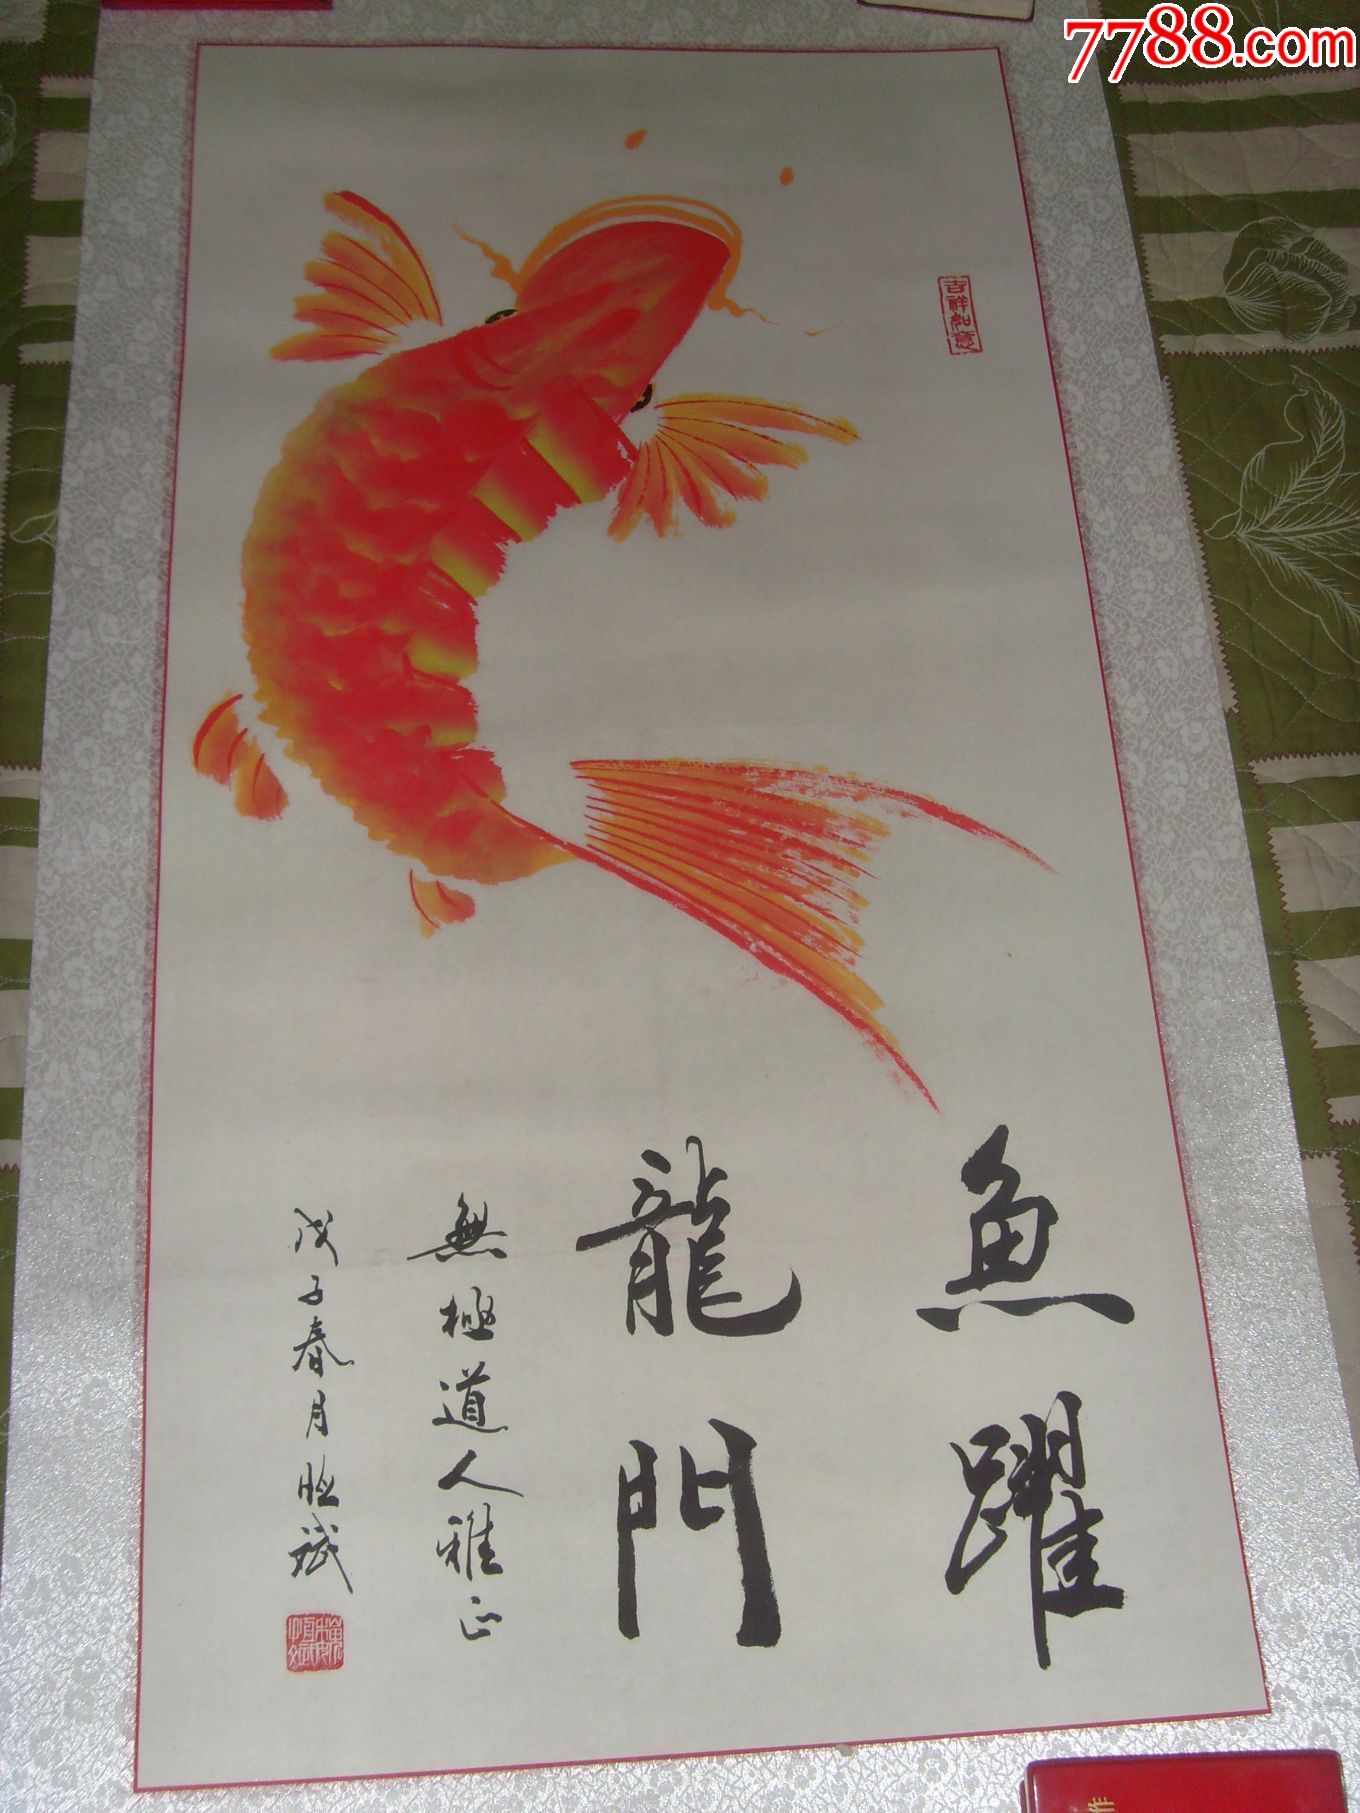 7788.com
吉祥如意
魚躍
龍門
無極道人雅正
戊子春月恒斌